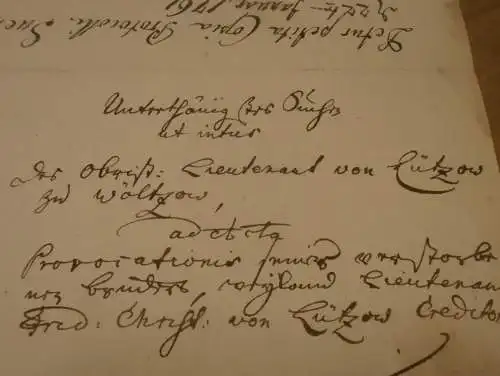 Detur petita Copia Protocolli. Sue
d. 22ten Januar. 1761
Unterthänigstes Suchen
ut intus
Des Obrist: Lieutenant von Lützow
zu Woltzow,
ad acta
Provocationis seines verstorbe
nen bruders, weyland Lieutenan
Frid: Christ: von Lützow Creditor